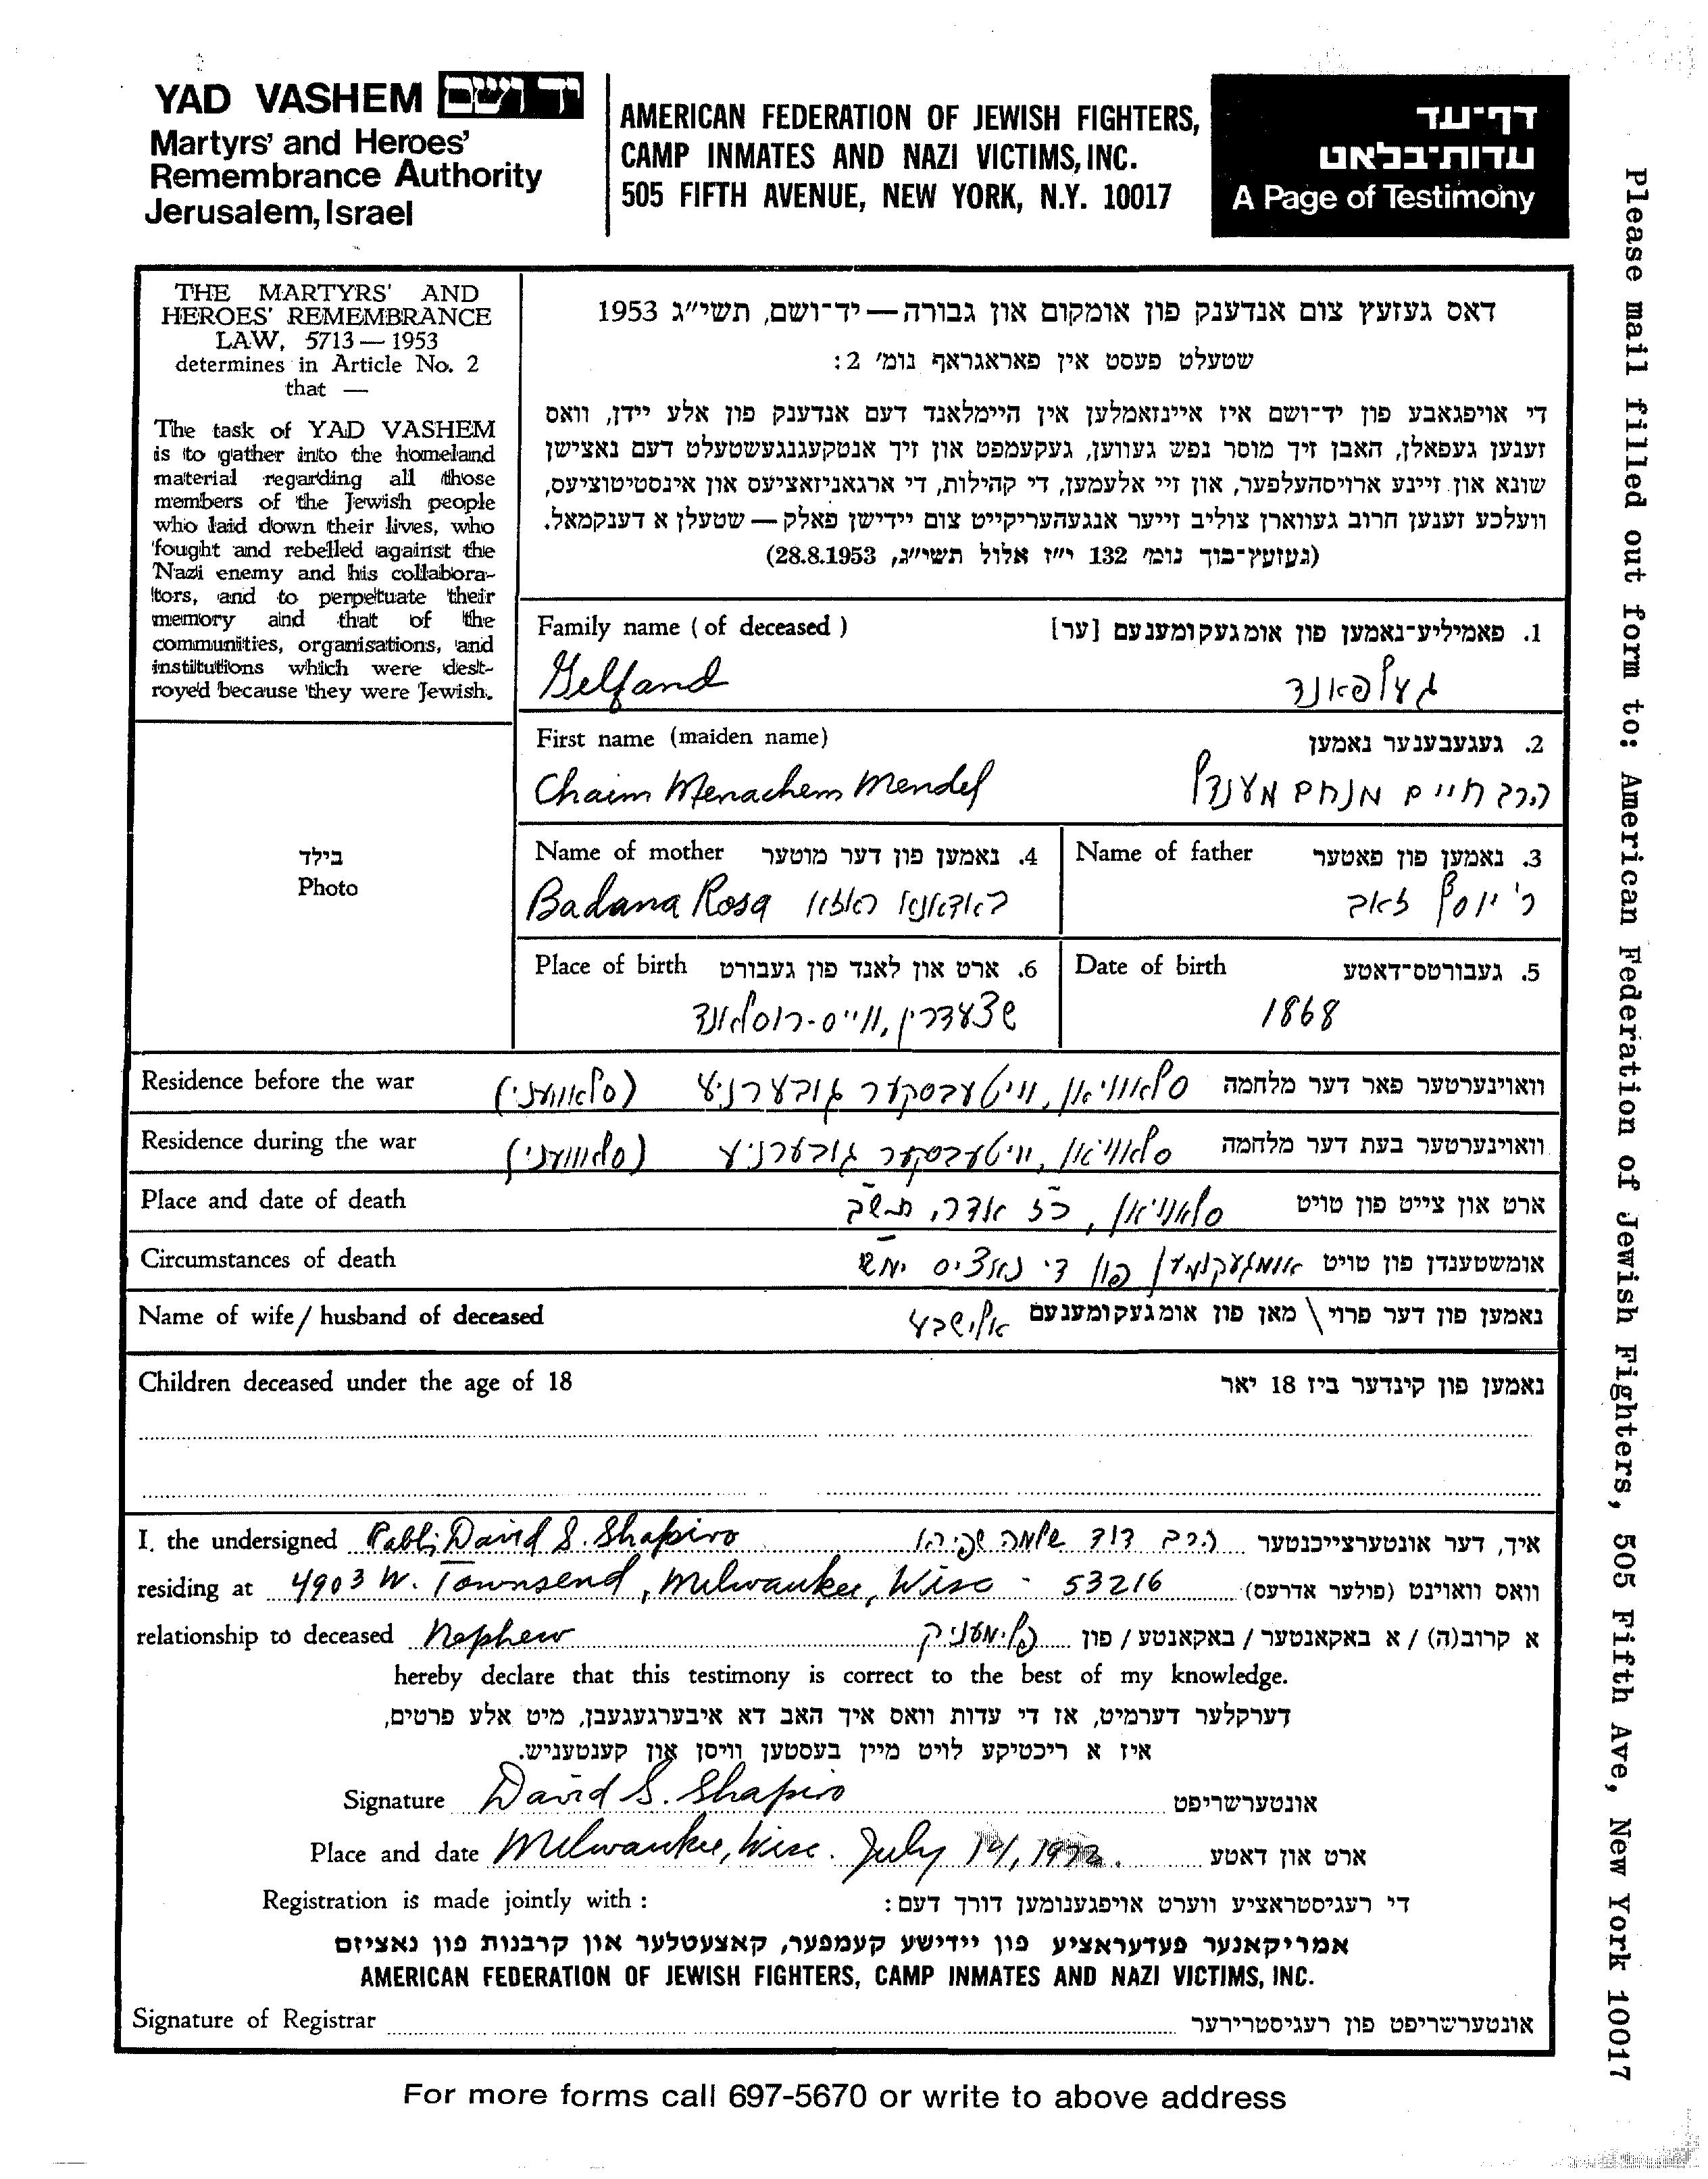 YAD VASHEM יד ושם
Martyrs' and Heroes'
Remembrance Authority
Jerusalem, Israel
AMERICAN FEDERATION OF JEWISH FIGHTERS,
CAMP INMATES AND NAZI VICTIMS, INC.
505 FIFTH AVENUE, NEW YORK, N.Y. 10017
דף-עד
עדות-בלאט
A Page of Testimony
THE MARTYRS' AND
HEROES' REMEMBRANCE
LAW, 5713 — 1953
determines in Article No. 2
that —
The task of YAD VASHEM
is to gather into the homeland
material regarding all those
members of the Jewish people
who laid down their lives, who
fought and rebelled against the
Nazi enemy and his collabora-
tors, and to perpetuate their
memory and that of the
communities, organisations, and
institutions which were dest-
royed because they were Jewish.
דאס געזעץ צום אנדענק פון אומקום און גבורה — יד-ושם, תשי"ג 1953
שטעלט פעסט אין פאראגראף נומ' 2:
די אויפגאבע פון יד-ושם איז איינזאמלען אין היימלאנד דעם אנדענק פון אלע יידן, וואס
זענען געפאלן, האבן זיך מוסר נפש געווען, געקעמפט און זיך אנטקעגנגעשטעלט דעם נאצישן
שונא און זיינע ארויסהעלפער, און זיי אלעמען, די קהילות, די ארגאניזאציעס און אינסטיטוציעס,
וועלכע זענען חרוב געווארן צוליב זייער אנגעהעריקייט צום יידישן פאלק — שטעלן א דענקמאל.
(געזעץ-בוך נומ' 132 י"ז אלול תשי"ג, 28.8.1953)
Family name ( of deceased ) 1. פאמיליע-נאמען פון אומגעקומענעם [ער]
Gelfand געלפאנד
First name (maiden name) 2. געגעבענער נאמען
Chaim Menachem Mendel הרב חיים מנחם מענדל
בילד
Photo
Name of mother 4. נאמען פון דער מוטער
Badana Rosa באדאנא ראזא
Name of father 3. נאמען פון פאטער
ר' יוסף זאב
Place of birth 6. ארט און לאנד פון געבורט
שצעדרין, ווייס-רוסלאנד
Date of birth 5. געבורטס-דאטע
1868
Residence before the war וואוינערטער פאר דער מלחמה סלאוויאן, וויטעבסקער גובערניע (סלאוועני)
Residence during the war וואוינערטער בעת דער מלחמה סלאוויאן, וויטעבסקער גובערניע (סלאוועני)
Place and date of death ארט און צייט פון טויט סלאוויאן, כ"ז אדר, תש"ב
Circumstances of death אומשטענדן פון טויט אומגעקומען פון די נאצים ימ"ש
Name of wife / husband of deceased נאמען פון דער פרוי \ מאן פון אומגעקומענעם אלישבע
Children deceased under the age of 18 נאמען פון קינדער ביז 18 יאר
I, the undersigned Rabbi David S. Shapiro הרב דוד שלמה שפירא איך, דער אונטערצייכנטער
residing at 4903 W. Townsend, Milwaukee, Wisc - 53216 וואס וואוינט (פולער אדרעס)
relationship to deceased Nephew פלימעניק א קרוב(ה) / א באקאנטער / באקאנטע / פון
hereby declare that this testimony is correct to the best of my knowledge.
דערקלער דערמיט, אז די עדות וואס איך האב דא איבערגעגעבן, מיט אלע פרטים,
איז א ריכטיקע לויט מיין בעסטען וויסן און קענטעניש.
Signature David S. Shapiro אונטערשריפט
Place and date Milwaukee, Wisc. July 14, 1972. ארט און דאטע
Registration is made jointly with : די רעגיסטראציע ווערט אויפגענומען דורך דעם:
אמריקאנער פעדעראציע פון יידישע קעמפער, קאצעטלער און קרבנות פון נאציזם
AMERICAN FEDERATION OF JEWISH FIGHTERS, CAMP INMATES AND NAZI VICTIMS, INC.
Signature of Registrar אונטערשריפט פון רעגיסטרירער
For more forms call 697-5670 or write to above address
Please mail filled out form to: American Federation of Jewish Fighters, 505 Fifth Ave, New York 10017